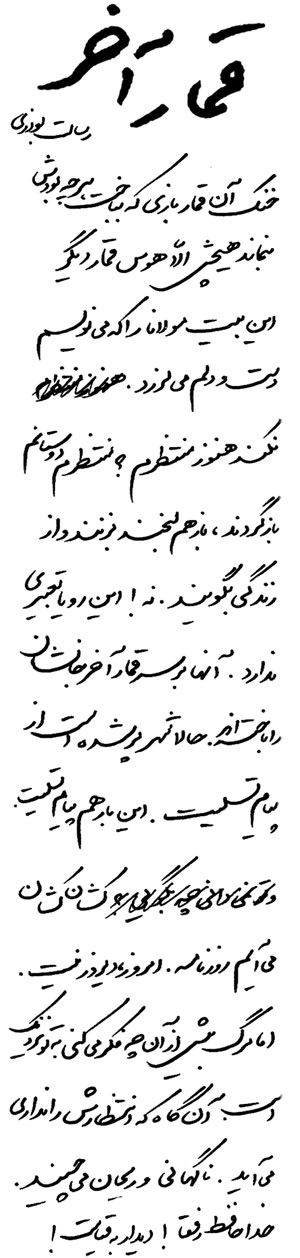 قمار آخر
رسالت بوذری
خنک آن قماربازی که بباخت هر چه بودش
بنماند هیچش الا هوس قمار دیگر
این بیت مولانا را که می‌نویسم
دست و دلم می‌لرزد.
نکند هنوز منتظرم؟ منتظرم دوستانم
بازگردند، باز هم لبخند بزنند و از
زندگی بگویند. نه! این رویا تعبیری
ندارد. آنها بر سر قمار آخر جانشان
را باخته‌اند. حالا شهر پر شده است از
پیام تسلیت. این بار هم پیام تسلیت.
و تو نمی‌دانی چه کشان کشان
می‌آیم روزنامه. امروز با دیروز نیست.
اما مرگ بیش از آن چه فکر می‌کنی به تو نزدیک
است. آن گاه که انتظارش را نداری
می‌آید. ناگهانی و ریحان می‌چیند.
خداحافظ رفقا! دیدار به قیامت!